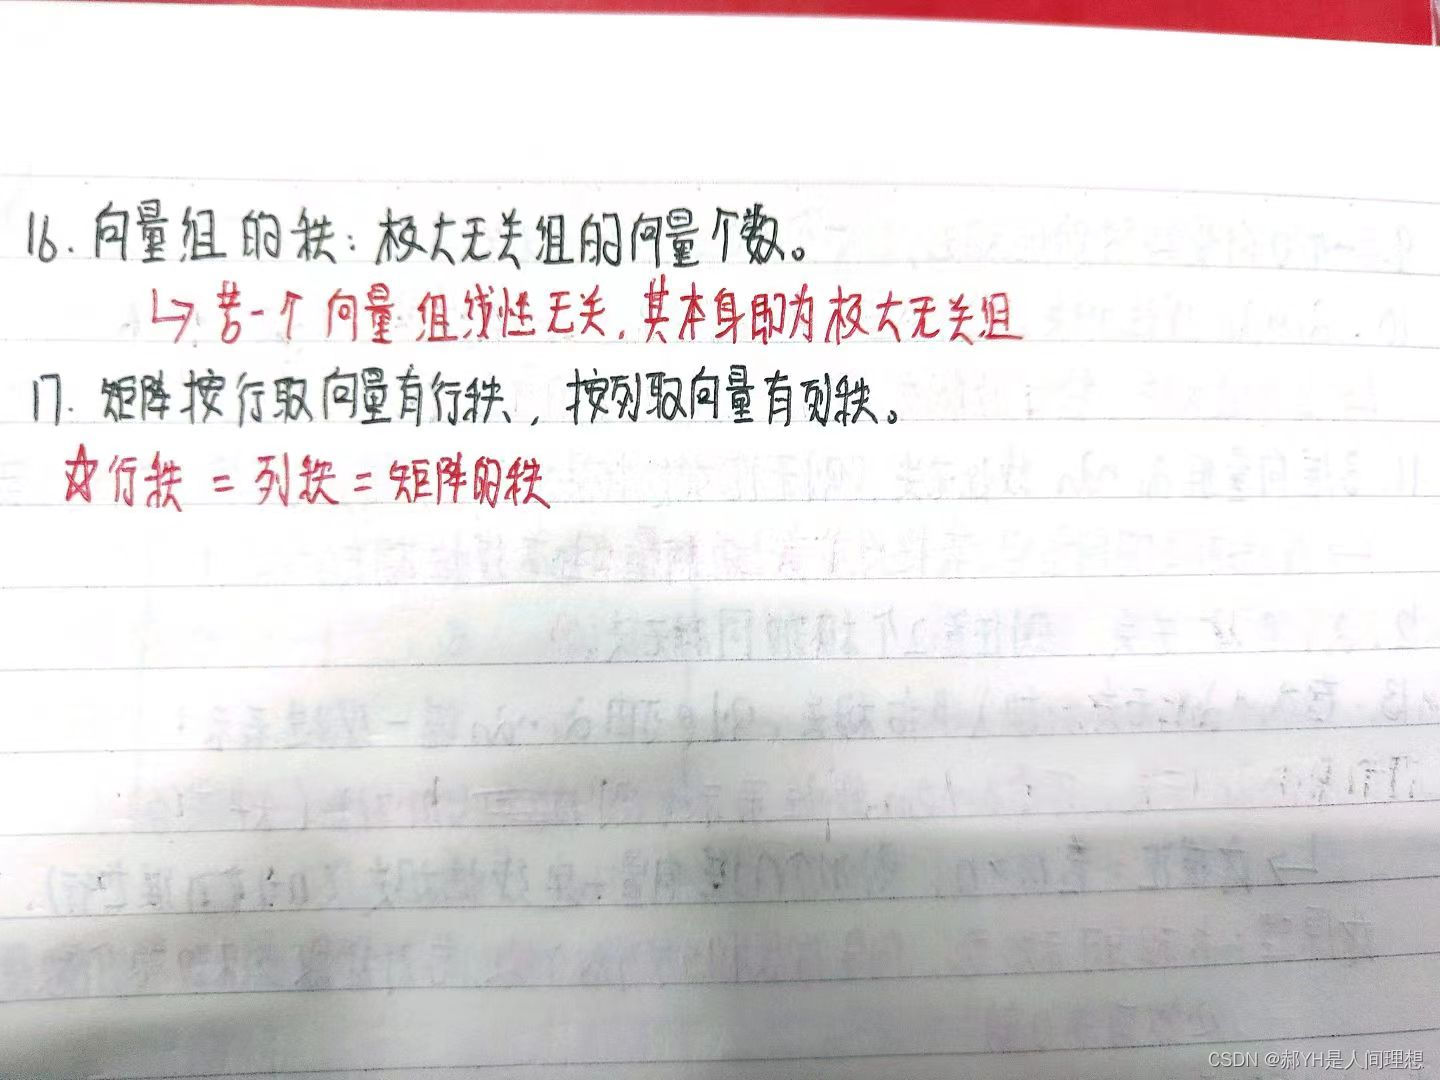 16. 向量组的秩：极大无关组的向量个数。
↳若一个向量组线性无关，其本身即为极大无关组
17. 矩阵按行取向量有行秩，按列取向量有列秩。
☆行秩 = 列秩 = 矩阵的秩
CSDN @郝YH是人间理想